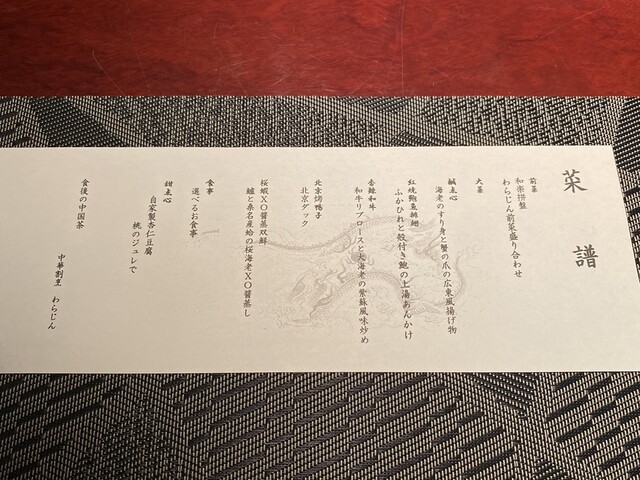 菜譜
前菜
和楽拼盤
わらじん前菜盛り合わせ
大菜
鹹点心
海老のすり身と蟹の爪の広東風揚げ物
紅焼鮑魚排翅
ふかひれと殻付き鮑の上湯あんかけ
香辣和牛
和牛リブロースと大海老の紫蘇風味炒め
北京烤鴨子
北京ダック
桜蝦XO醤蒸双鮮
鱸と桑名産蛤の桜海老XO醤蒸し
食事
選べるお食事
甜点心
自家製杏仁豆腐
桃のジュレで
食後の中国茶
中華割烹 わらじん